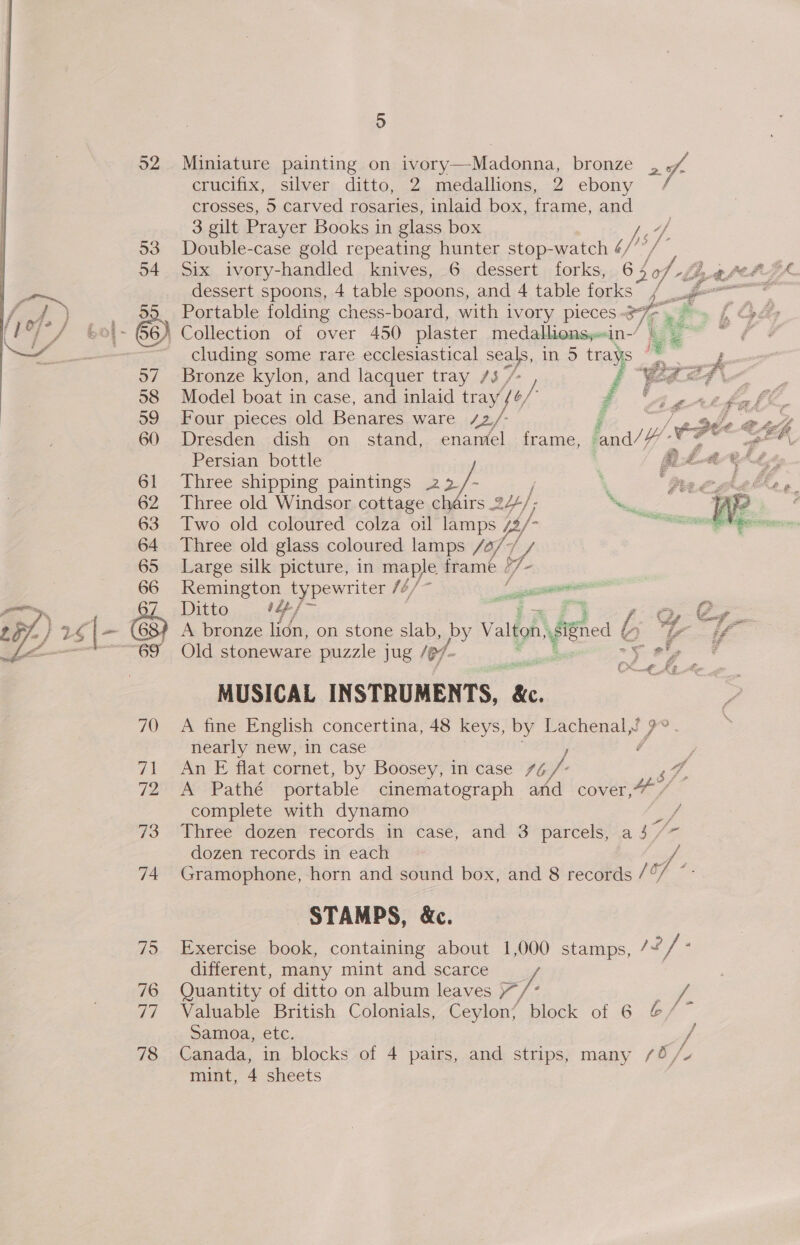 5
52 Miniature painting on ivory—Madonna, bronze
crucifix, silver ditto, 2 medallions, 2 ebony
crosses, 5 carved rosaries, inlaid box, frame, and
3 gilt Prayer Books in glass box
53 Double-case gold repeating hunter stop-watch
54 Six ivory-handled knives, 6 dessert forks, 6
dessert spoons, 4 table spoons, and 4 table forks
55 Portable folding chess-board, with ivory pieces
60/- 56 Collection of over 450 plaster medallions, in-
cluding some rare ecclesiastical seals, in 5 trays
57 Bronze kylon, and lacquer tray
58 Model boat in case, and inlaid tray
59 Four pieces old Benares ware 42/-
60 Dresden dish on stand, enamel frame, and
Persian bottle
61 Three shipping paintings 22/-
62 Three old Windsor cottage chairs 24/-
63 Two old coloured colza oil lamps
64 Three old glass coloured lamps
65 Large silk picture, in maple frame
66 Remington typewriter
67 Ditto
25/- 68 A bronze lion, on stone slab, by Valton, signed
69 Old stoneware puzzle jug
MUSICAL INSTRUMENTS, &c.
70 A fine English concertina, 48 keys, by Lachenal,
nearly new, in case
71 An E flat cornet, by Boosey, in case
72 A Pathé portable cinematograph and cover,
complete with dynamo
73 Three dozen records in case, and 3 parcels, a
dozen records in each
74 Gramophone, horn and sound box, and 8 records
STAMPS, &c.
75 Exercise book, containing about 1,000 stamps,
different, many mint and scarce
76 Quantity of ditto on album leaves
77 Valuable British Colonials, Ceylon, block of 6
Samoa, etc.
78 Canada, in blocks of 4 pairs, and strips, many
mint, 4 sheets